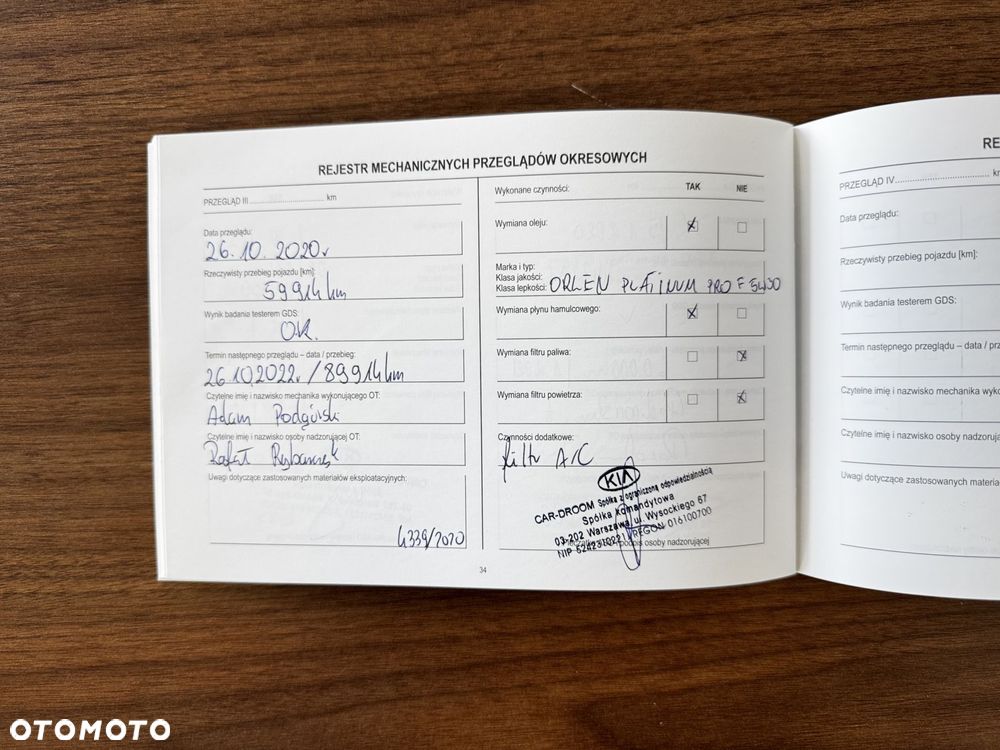 REJESTR MECHANICZNYCH PRZEGLĄDÓW OKRESOWYCH
PRZEGLĄD III........................... km
Data przeglądu:
26.10.2020r
Rzeczywisty przebieg pojazdu [km]:
59914 km
Wynik badania testerem GDS:
O.K.
Termin następnego przeglądu – data / przebieg:
26.10.2022r. / 89914 km
Czytelne imię i nazwisko mechanika wykonującego OT:
Adam Podgórski
Czytelne imię i nazwisko osoby nadzorującej OT:
Rafał
Uwagi dotyczące zastosowanych materiałów eksploatacyjnych:
4339/2020
Wykonane czynności: TAK NIE
Wymiana oleju:
Marka i typ:
Klasa jakości:
Klasa lepkości: ORLEN PLATINUM PRO F 5W30
Wymiana płynu hamulcowego:
Wymiana filtru paliwa:
Wymiana filtru powietrza:
Czynności dodatkowe:
filtr A/C
KIA
CAR-DROOM Spółka z ograniczoną odpowiedzialnością
Spółka komandytowa
03-202 Warszawa, ul. Wysockiego 67
NIP 5242310221 REGON 016100700
podpis osoby nadzorującej
34
RE
PRZEGLĄD IV................................ km
Data przeglądu:
Rzeczywisty przebieg pojazdu [km]:
Wynik badania testerem GDS:
Termin następnego przeglądu – data / prze
Czytelne imię i nazwisko mechanika wykonu
Czytelne imię i nazwisko osoby nadzorują
Uwagi dotyczące zastosowanych materia
OTOMOTO